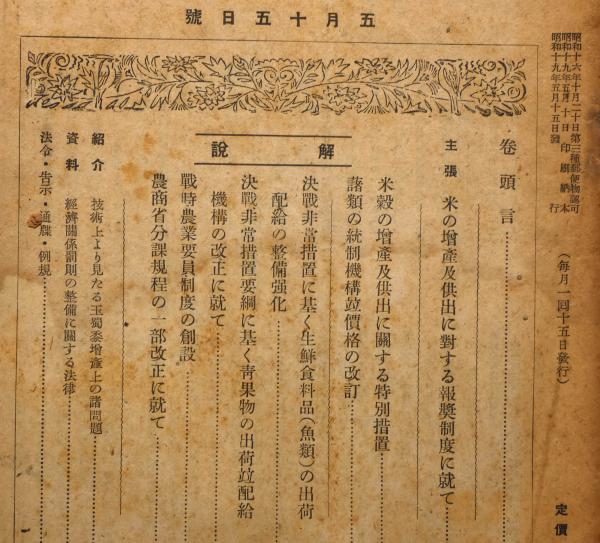 五月十五日號
昭和十六年十月二十日第三種郵便物認可
昭和十九年五月十日印刷納本
昭和十九年五月十五日發行
(毎月一回十五日發行)
定價
卷頭言
主張 米の增產及供出に對する報奬制度に就て
解說
米穀の增產及供出に關する特別措置
諸類の統制機構竝價格の改訂
決戰非常措置に基く生鮮食料品(魚類)の出荷
配給の整備强化
決戰非常措置要綱に基く靑果物の出荷竝配給
機構の改正に就て
戰時農業要員制度の創設
農商省分課規程の一部改正に就て
紹介 技術上より見たる玉蜀黍增產上の諸問題
資料 經濟關係罰則の整備に關する法律
法令・吿示・通牒・例規